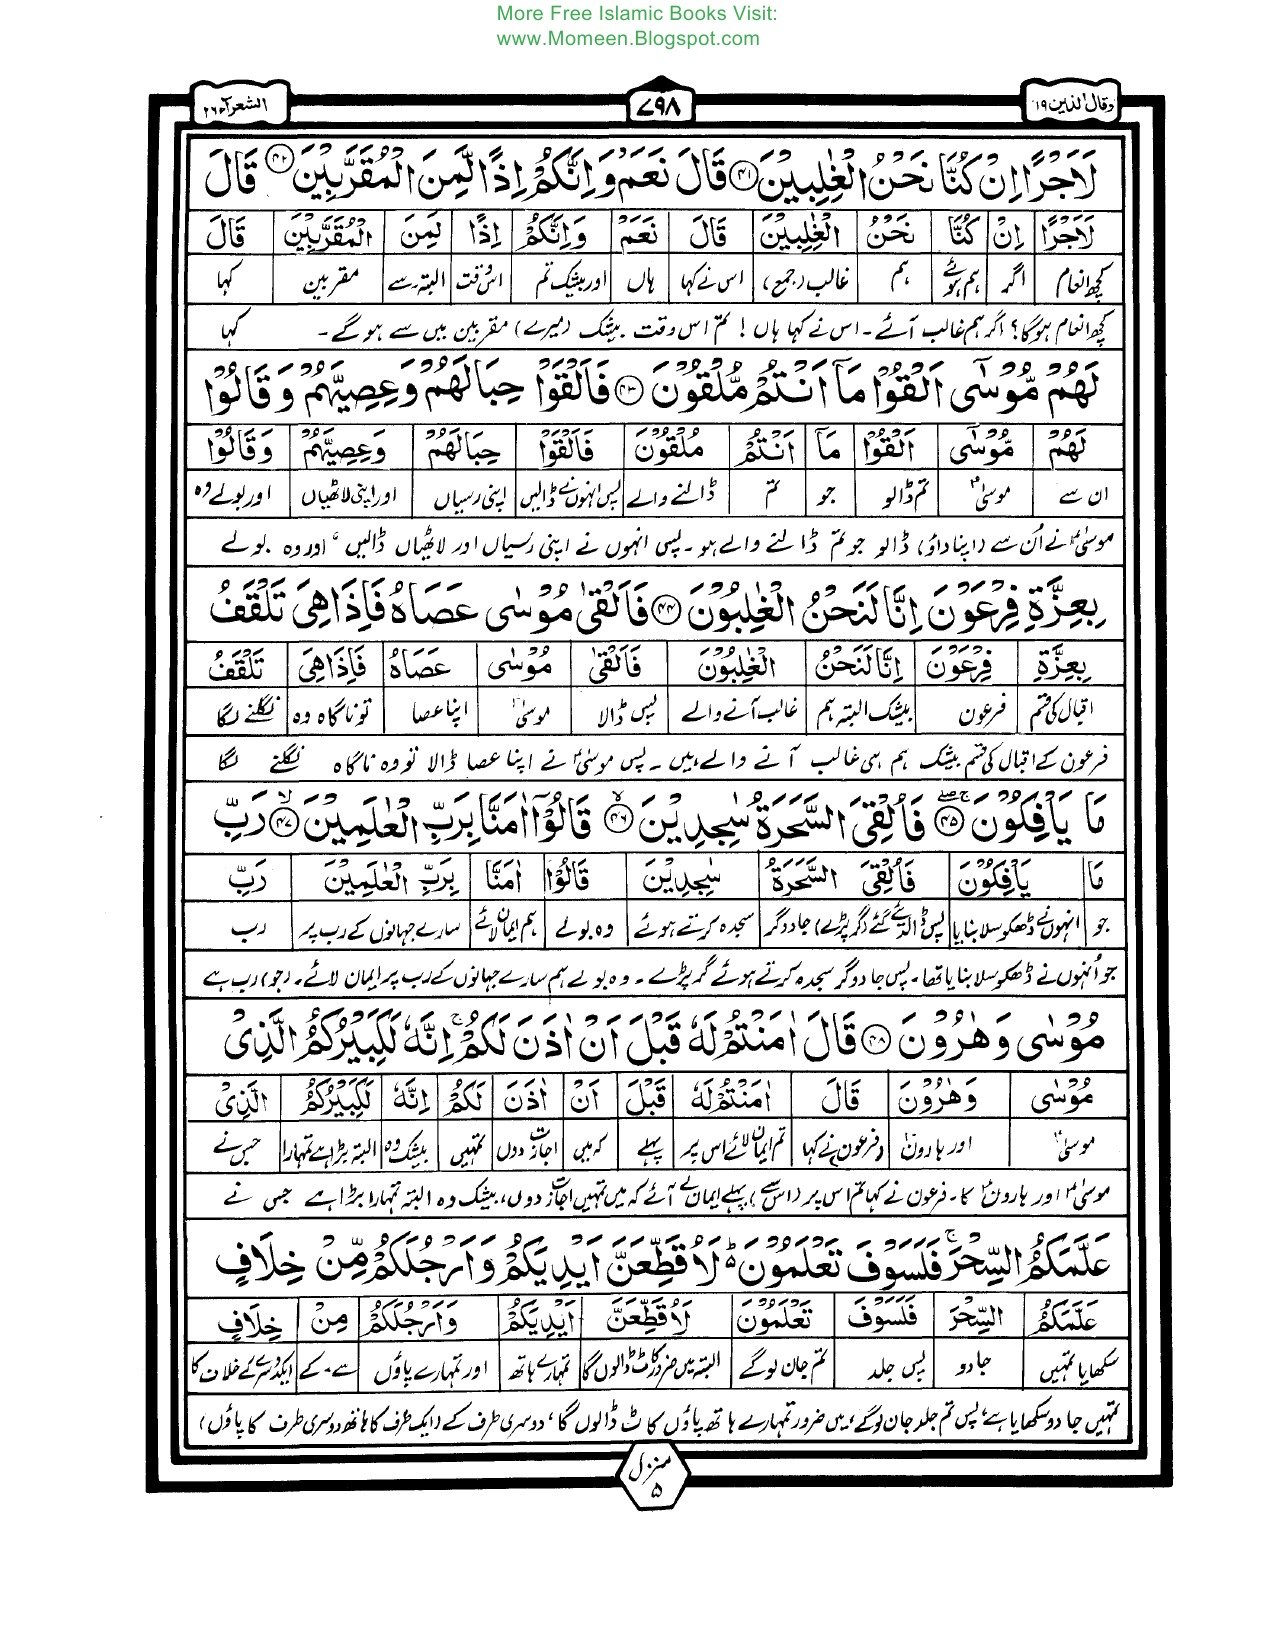 More Free Islamic Books Visit:
www.Momeen.Blogspot.com
وقال الذین ۱۹
۷۹۸
الشعرآء ۲۶
لَاَجْرًا اِنْ كُنَّا نَحْنُ الْغٰلِبِيْنَ ﴿۴۱﴾ قَالَ نَعَمْ وَاِنَّكُمْ اِذًا لَّمِنَ الْمُقَرَّبِيْنَ ﴿۴۲﴾ قَالَ
لَاَجْرًا اِنْ كُنَّا نَحْنُ الْغٰلِبِيْنَ قَالَ نَعَمْ وَاِنَّكُمْ اِذًا لَمِنَ الْمُقَرَّبِيْنَ قَالَ
کچھ انعام اگر ہم ہوئے ہم غالب (جمع) اس نے کہا ہاں اور بیشک تم اس وقت البتہ۔سے مقربین کہا
کچھ انعام ہوگا؟ اگر ہم غالب آئے۔ اس نے کہا ہاں! تم اس وقت بیشک (میرے) مقربین میں سے ہوگے۔ کہا
لَهُمْ مُّوْسٰۤى اَلْقُوْا مَاۤ اَنْتُمْ مُّلْقُوْنَ ﴿۴۳﴾ فَاَلْقَوْا حِبَالَهُمْ وَعِصِيَّهُمْ وَقَالُوْا
لَهُمْ مُّوْسٰۤى اَلْقُوْا مَاۤ اَنْتُمْ مُلْقُوْنَ فَاَلْقَوْا حِبَالَهُمْ وَعِصِيَّهُمْ وَقَالُوْا
ان سے موسیٰؑ تم ڈالو جو تم ڈالنے والے پس انہوں نے ڈالیں اپنی رسیاں اور اپنی لاٹھیاں اور بولے وہ
موسیٰؑ نے اُن سے (اپنا داؤ) ڈالو جو تم ڈالنے والے ہو۔ پس انہوں نے اپنی رسیاں اور لاٹھیاں ڈالیں، اور وہ بولے
بِعِزَّةِ فِرْعَوْنَ اِنَّا لَنَحْنُ الْغٰلِبُوْنَ ﴿۴۴﴾ فَاَلْقٰى مُوْسٰى عَصَاهُ فَاِذَا هِىَ تَلْقَفُ
بِعِزَّةِ فِرْعَوْنَ اِنَّا لَنَحْنُ الْغٰلِبُوْنَ فَاَلْقٰى مُوْسٰى عَصَاهُ فَاِذَا هِىَ تَلْقَفُ
اقبال کی قسم فرعون بیشک البتہ ہم غالب آنے والے پس ڈالا موسیٰؑ اپنا عصا تو ناگاہ وہ نگلنے لگا
فرعون کے اقبال کی قسم بیشک ہم ہی غالب آنے والے ہیں۔ پس موسیٰؑ نے اپنا عصا ڈالا تو وہ ناگاہ نگلنے لگا
مَا يَاْفِكُوْنَ ﴿۴۵﴾ فَاُلْقِىَ السَّحَرَةُ سٰجِدِيْنَ ﴿۴۶﴾ قَالُوْۤا اٰمَنَّا بِرَبِّ الْعٰلَمِيْنَ ﴿۴۷﴾ رَبِّ
مَا يَاْفِكُوْنَ فَاُلْقِىَ السَّحَرَةُ سٰجِدِيْنَ قَالُوْا اٰمَنَّا بِرَبِّ الْعٰلَمِيْنَ رَبِّ
جو انہوں نے ڈھکوسلا بنایا پس ڈالدیئے گئے (گر پڑے) جادوگر سجدہ کرتے ہوئے وہ بولے ہم ایمان لائے سارے جہانوں کے رب پر رب
جو اُنہوں نے ڈھکوسلا بنایا تھا۔ پس جادوگر سجدہ کرتے ہوئے گر پڑے۔ وہ بولے ہم سارے جہانوں کے رب پر ایمان لائے۔ (جو) رب ہے
مُوْسٰى وَهٰرُوْنَ ﴿۴۸﴾ قَالَ اٰمَنْتُمْ لَهٗ قَبْلَ اَنْ اٰذَنَ لَكُمْ ۚ اِنَّهٗ لَكَبِيْرُكُمُ الَّذِىْ
مُوْسٰى وَهٰرُوْنَ قَالَ اٰمَنْتُمْ لَهٗ قَبْلَ اَنْ اٰذَنَ لَكُمْ اِنَّهٗ لَكَبِيْرُكُمُ الَّذِىْ
موسیٰؑ اور ہارونؑ (فرعون نے) کہا تم ایمان لائے اس پر پہلے کہ میں اجازت دوں تمہیں بیشک وہ البتہ بڑا ہے تمہارا جس نے
موسیٰؑ اور ہارونؑ کا۔ فرعون نے کہا تم اس پر (اس سے) پہلے ایمان لے آئے کہ میں تمہیں اجازت دوں، بیشک وہ البتہ تمہارا بڑا ہے جس نے
عَلَّمَكُمُ السِّحْرَ ۚ فَلَسَوْفَ تَعْلَمُوْنَ ؕ لَاُقَطِّعَنَّ اَيْدِيَكُمْ وَاَرْجُلَكُمْ مِّنْ خِلَافٍ
عَلَّمَكُمُ السِّحْرَ فَلَسَوْفَ تَعْلَمُوْنَ لَاُقَطِّعَنَّ اَيْدِيَكُمْ وَاَرْجُلَكُمْ مِنْ خِلَافٍ
سکھایا تمہیں جادو پس جلد تم جان لوگے البتہ میں ضرور کاٹ ڈالوں گا تمہارے ہاتھ اور تمہارے پاؤں سے۔کے ایک دوسرے کے خلاف کا
تمہیں جادو سکھایا ہے، پس تم جلد جان لوگے، میں ضرور تمہارے ہاتھ پاؤں کاٹ ڈالوں گا، دوسری طرف کے (ایک طرف کا ہاتھ دوسری طرف کا پاؤں)
منزل
۵